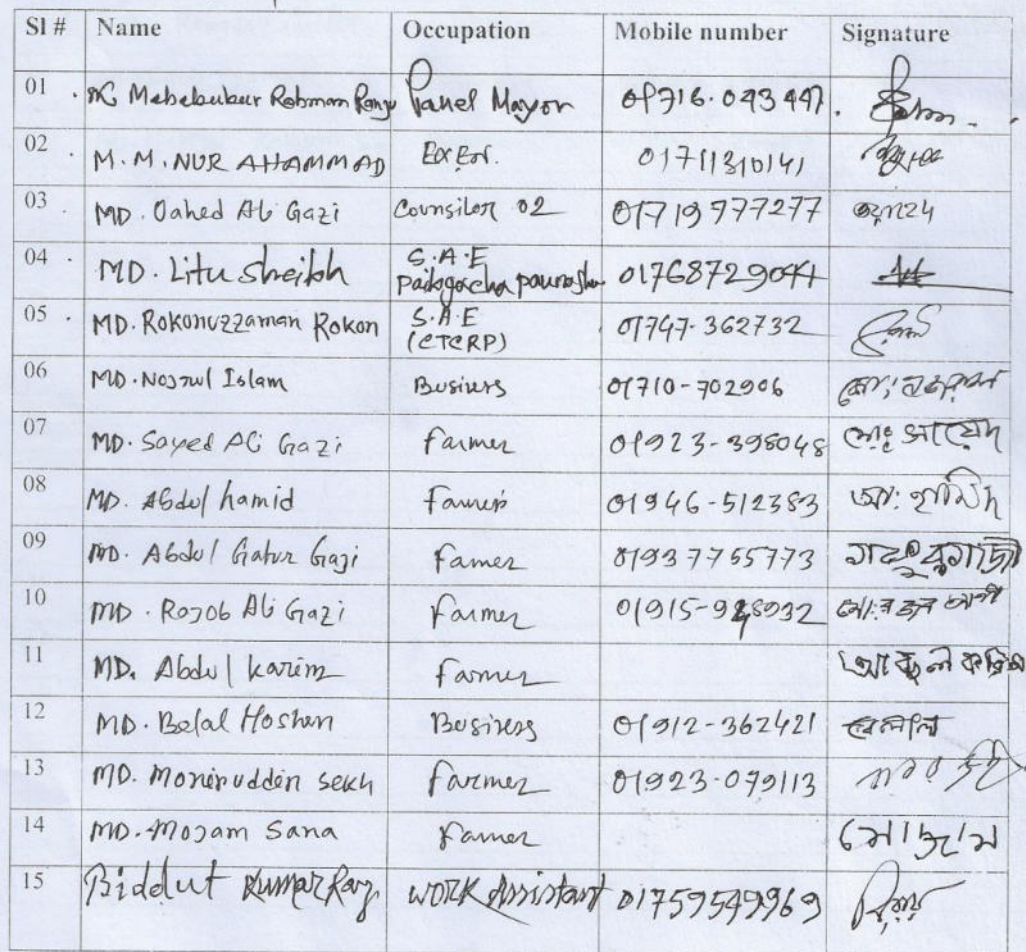 Sl # Name Occupation Mobile number Signature
01 Md Mahebubur Rohman Panel Mayor 01716.043447
02 M.M. NUR AHAMMAD Ex En. 01711310141
03 MD. Oahed Ali Gazi Counsilor 02 01719777277
04 MD. Litu Sheikh S.A.E 017687290
05 MD. Rokonuzzaman Rokon S.A.E (CTCRP) 01747-362732
06 MD. Nozrul Islam Businers 01710-702906
07 MD. Sayed Ali Gazi farmer 01923-398048 মোঃ সায়েদ
08 MD. Abdul hamid farmer 01946-512383 আঃ হামিদ
09 MD. Abdul Gafur Gazi Famer 01937755773
10 MD. Rojob Ali Gazi Farmer 01915-9 8932
11 MD. Abdul karim farmer
12 MD. Belal Hoshen Businers 01912-362421 বেলাল
13 MD. Moniruddin sekh farmer 01923-079113
14 MD. Mojam Sana Farmer মোজাম
15 Biddut Kumar Work Assistant 01759549969